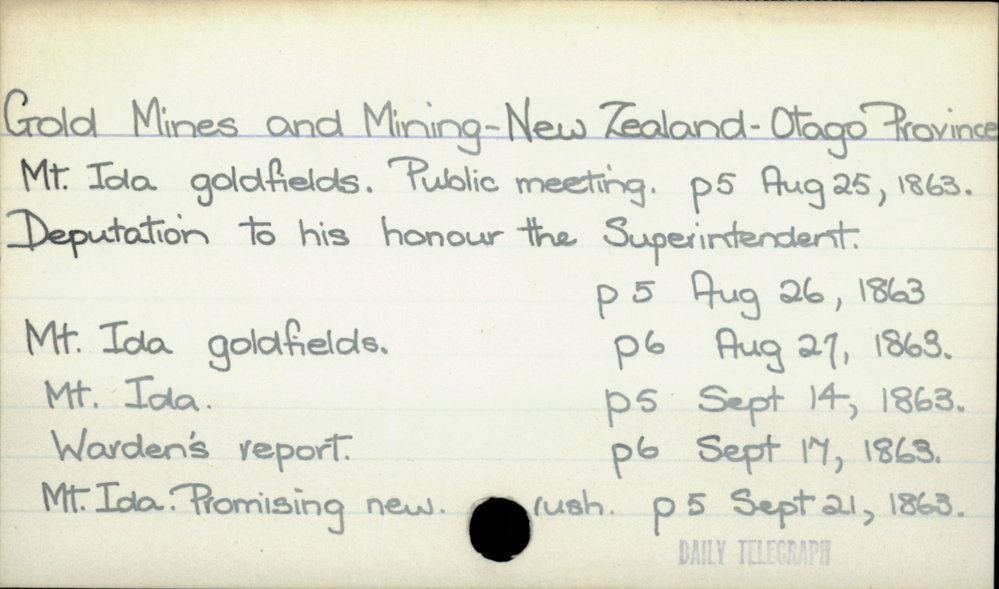 Gold Mines and Mining-New Zealand-Otago Province
Mt. Ida goldfields. Public meeting. p5 Aug 25, 1863.
Deputation to his honour the Superintendent.
p5 Aug 26, 1863
Mt. Ida goldfields. p6 Aug 27, 1863.
Mt. Ida. p5 Sept 14, 1863.
Warden's report. p6 Sept 17, 1863.
Mt. Ida. Promising new. rush. p5 Sept 21, 1863.
DAILY TELEGRAPH